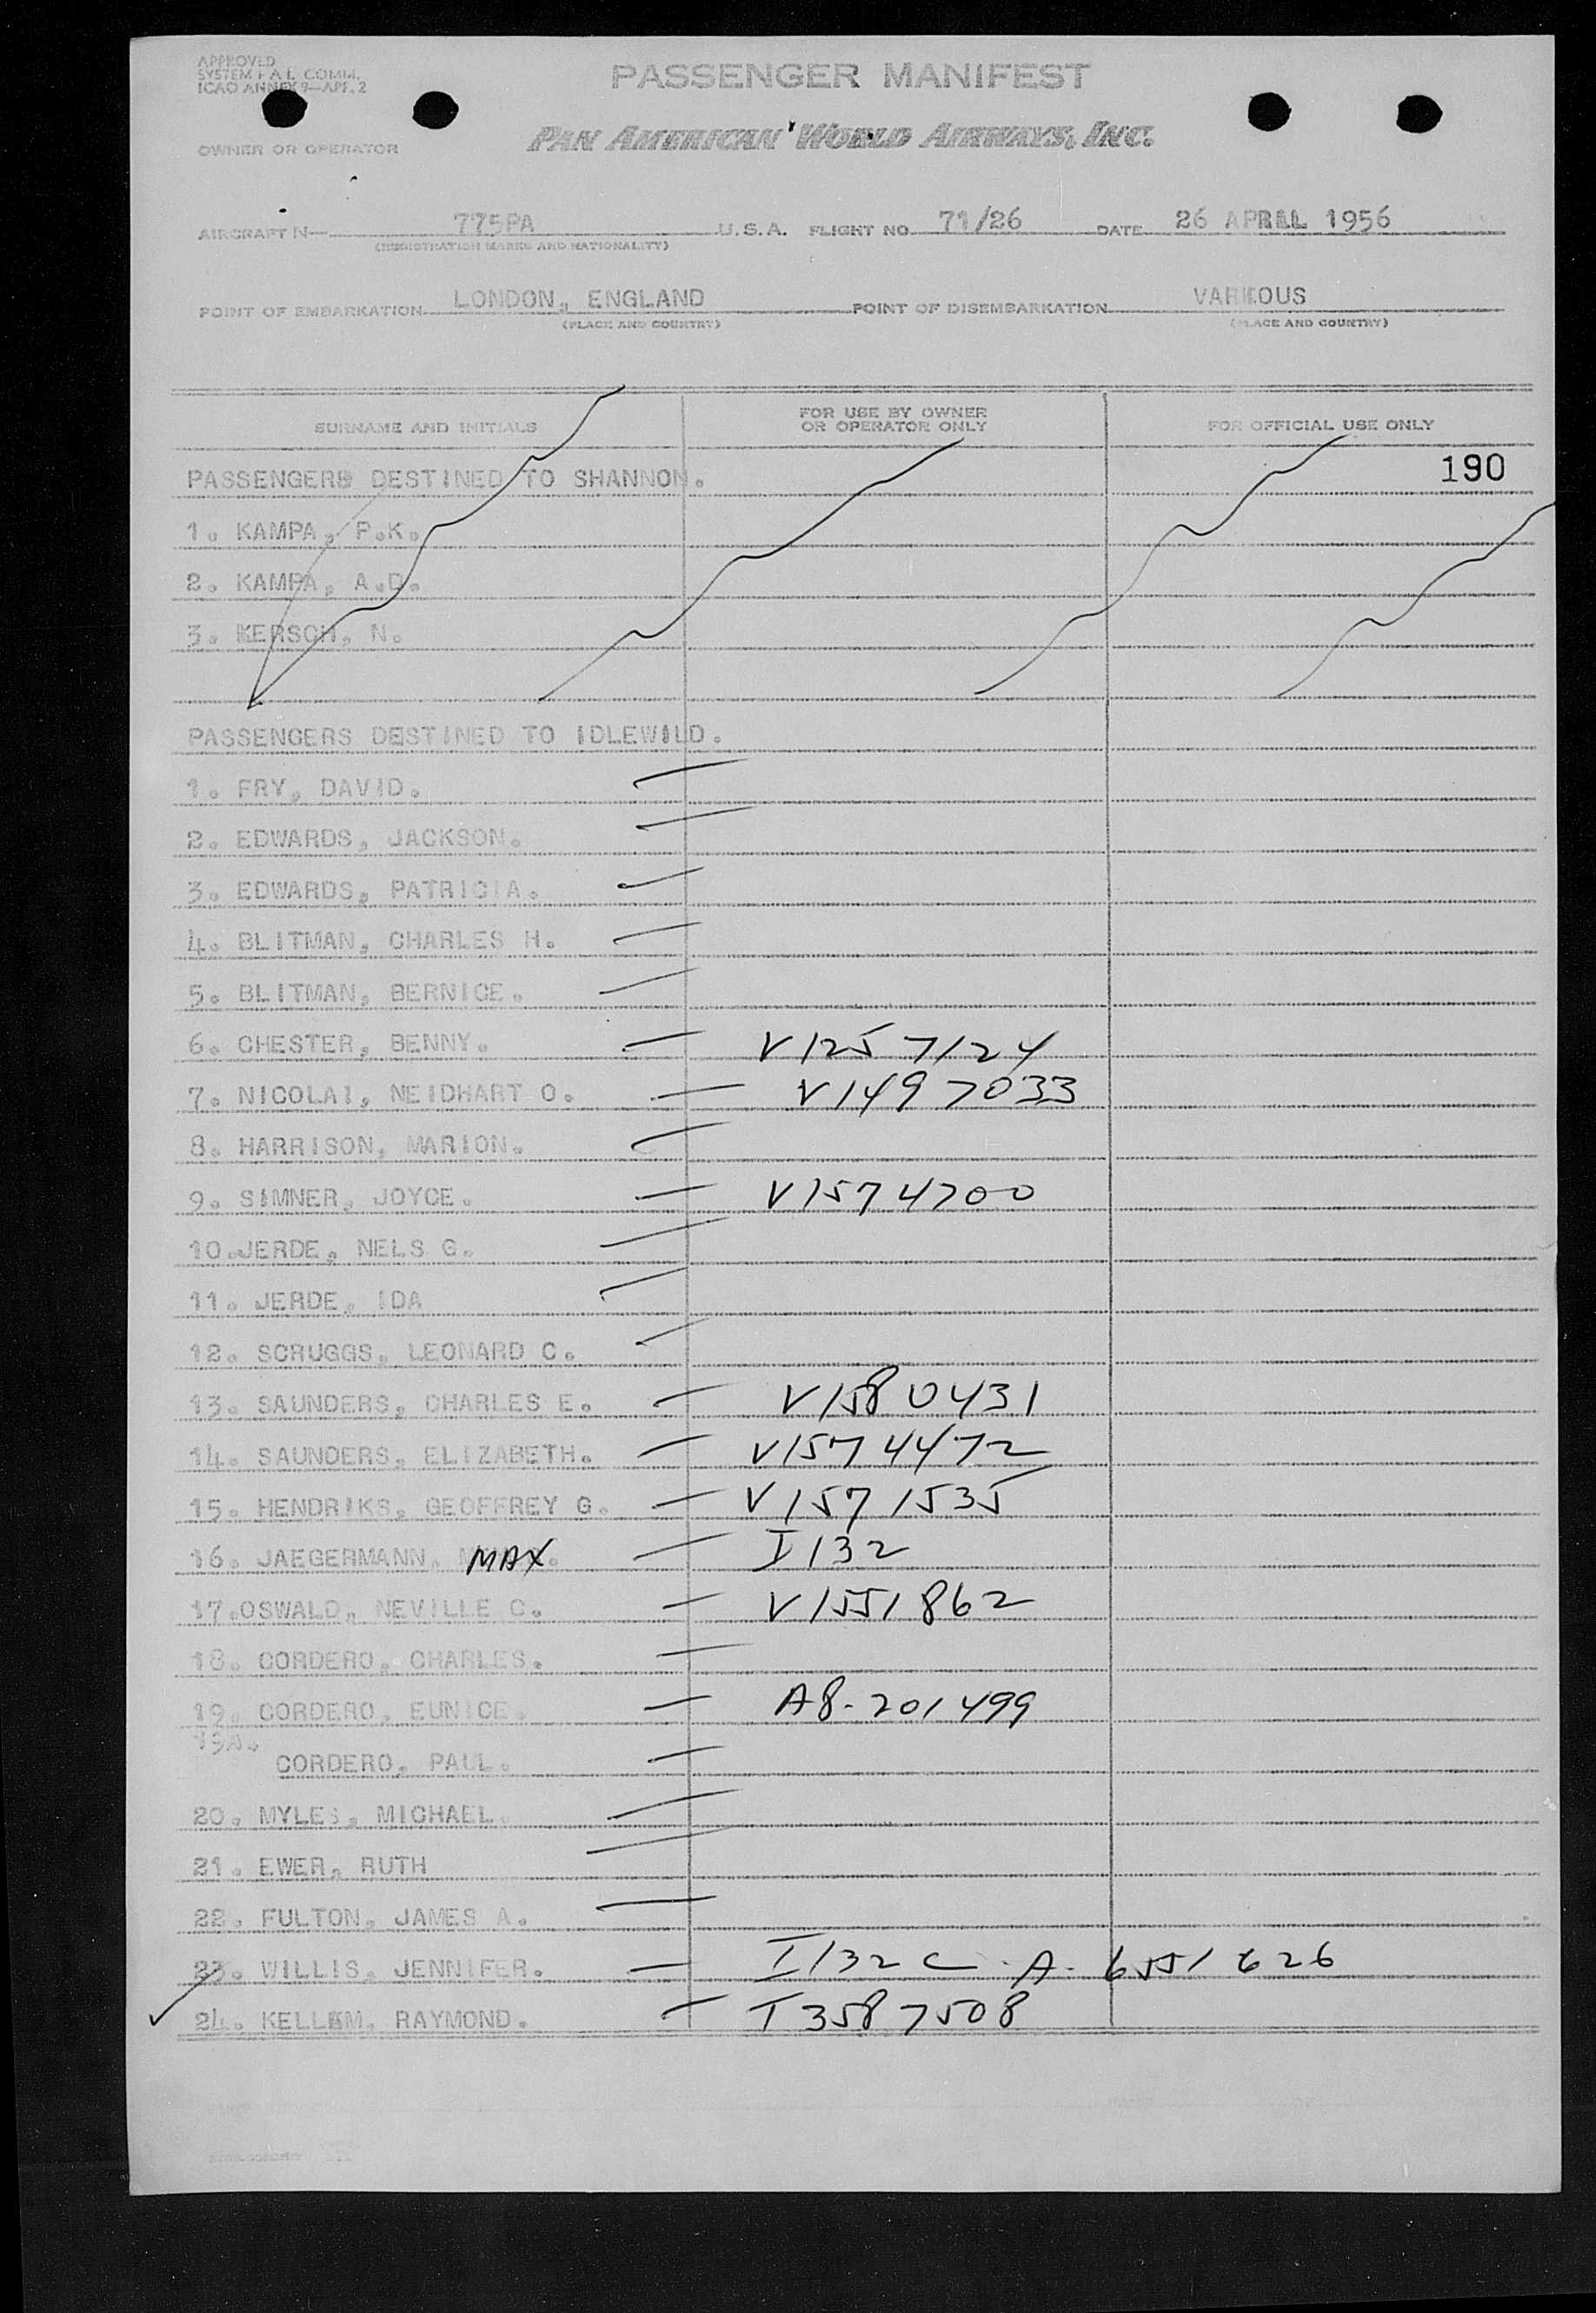 APPROVED
SYSTEM F A L COMM.
ICAO ANNEX 9—APP. 2
PASSENGER MANIFEST
PAN AMERICAN WORLD AIRWAYS, INC.
OWNER OR OPERATOR
AIRCRAFT N— 775PA U.S.A. FLIGHT NO. 71/26 DATE 26 APRIL 1956
(REGISTRATION MARKS AND NATIONALITY)
POINT OF EMBARKATION LONDON, ENGLAND POINT OF DISEMBARKATION VARIOUS
(PLACE AND COUNTRY) (PLACE AND COUNTRY)
SURNAME AND INITIALS FOR USE BY OWNER OR OPERATOR ONLY FOR OFFICIAL USE ONLY
PASSENGERS DESTINED TO SHANNON. 190
1. KAMPA, P.K.
2. KAMPA, A.D.
3. KERSCH, N.
PASSENGERS DESTINED TO IDLEWILD.
1. FRY, DAVID.
2. EDWARDS, JACKSON.
3. EDWARDS, PATRICIA.
4. BLITMAN, CHARLES H.
5. BLITMAN, BERNICE.
6. CHESTER, BENNY. V1257124
7. NICOLAI, NEIDHART O. V1497033
8. HARRISON, MARION.
9. SIMNER, JOYCE. V1574700
10.JERDE, NELS G.
11. JERDE, IDA
12. SCRUGGS, LEONARD C.
13. SAUNDERS, CHARLES E. V1580431
14. SAUNDERS, ELIZABETH. V1574472
15. HENDRIKS, GEOFFREY G. V1571535
16. JAEGERMANN, MAX. I132
17.OSWALD, NEVILLE C. V1551862
18. CORDERO, CHARLES.
19. CORDERO, EUNICE. A8-201499
19A.
CORDERO, PAUL.
20. MYLES, MICHAEL.
21. EWER, RUTH
22. FULTON, JAMES A.
23. WILLIS, JENNIFER. I132 C. A. 6551626
24. KELLEM, RAYMOND. T3587508